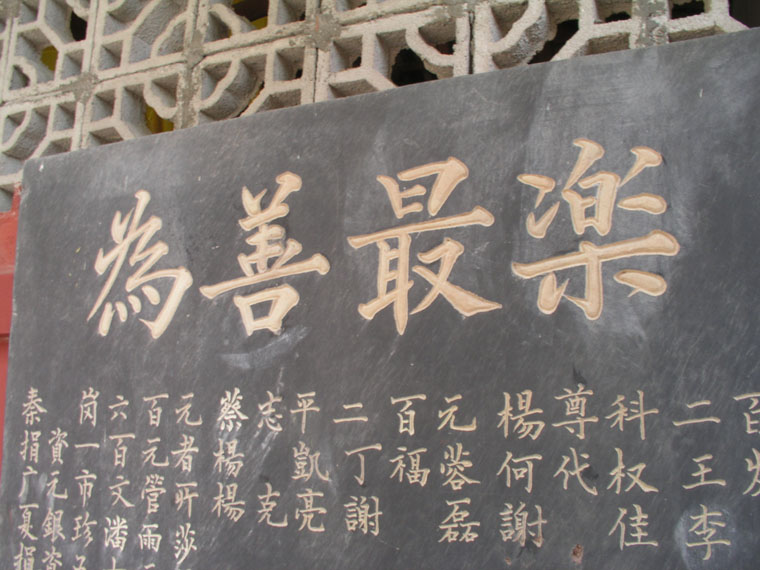 為善最楽
秦岗六百元 蔡志平二百元 楊尊科二百
捐資一百元者 楊凱 丁福蓉 何代权 王
广元市文營所 楊克亮 謝磊 謝佳 李
夏銀珍 潘雨莎
捐资